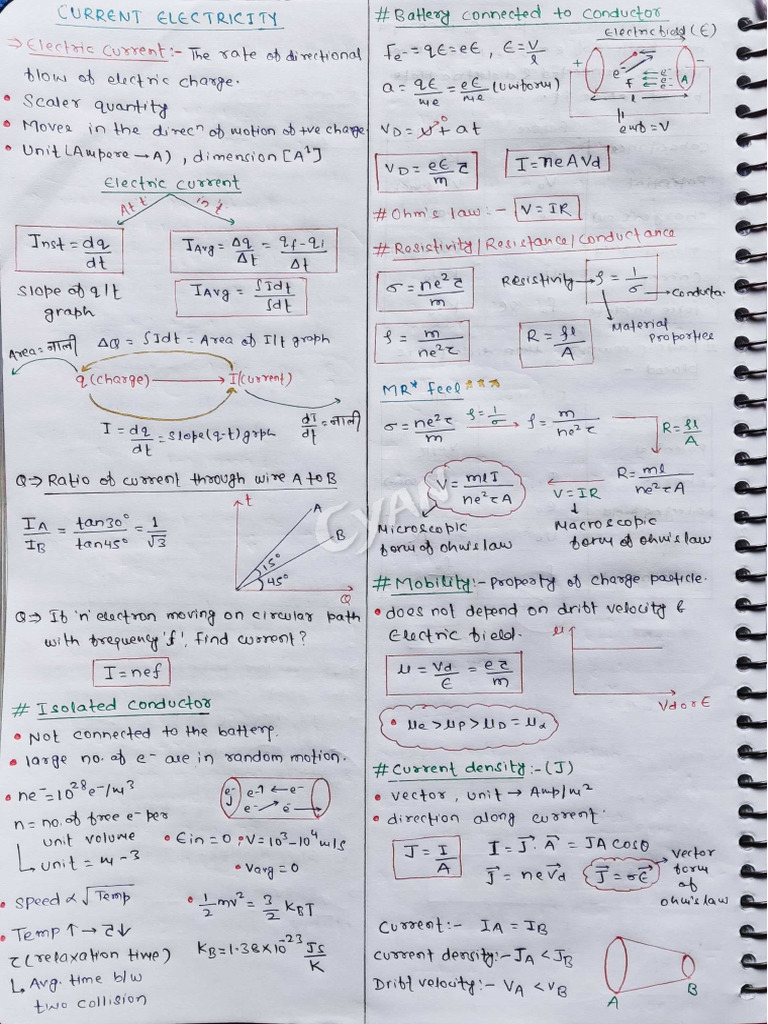 CURRENT ELECTRICITY
⇒ Electric Current:- The rate of directional
flow of electric charge.
• Scaler quantity
• Moves in the direcⁿ of motion of +ve charge
• Unit (Ampere → A), dimension [A¹]
Electric current
At t
in 't'
Inst = dq/dt
IAvg = Δq/Δt = qf-qi/Δt
slope of q/t
graph
IAvg = ∫Idt/∫dt
Area = नाली
ΔQ = ∫Idt = Area of I/t graph
q(charge) → I(current)
I = dq/dt = slope(q-t) grph
dI/dt = नाली
Q ⇒ Ratio of current through wire A to B
IA/IB = tan30°/tan45° = 1/√3
t
A
B
15°
45°
Q
Q ⇒ If 'n' electron moving on circular path
with frequency 'f', find current?
I = nef
# Isolated conductor
• Not connected to the battery.
• large no. of e- are in random motion.
• ne⁻ = 10²⁸ e⁻/m³
n = no. of free e⁻ per
unit volume
unit = m-3
e⁻ e⁻↑ ←e⁻
e⁻ e⁻
• Ein = 0 • V = 10³-10⁴ m/s
• Vavg = 0
• speed ∝ √Temp
• 1/2 mv² = 3/2 KBT
• Temp ↑ → τ↓
τ (relaxation time)
KB = 1.38×10⁻²³ Js/K
Avg. time b/w
two collision
# Battery connected to conductor
fe⁻ = qE = eE, E = V/l
Electric field (E)
+
-
e⁻
f
e⁻
e⁻
e⁻
A
l
emf = V
a = qE/me = eE/me (uniform)
VD = u↗⁰ + at
VD = eE/m τ
I = neAVd
# Ohm's law :- V = IR
# Resistivity/Resistance/conductance
σ = ne²τ/m
Resistivity → ρ = 1/σ → Conducta.
Material
Properties
ρ = m/ne²τ
R = ρl/A
MR* feel ***
σ = ne²τ/m ρ=1/σ → ρ = m/ne²τ
R = ρl/A
R = ml/ne²τA
V = IR
V = mlI/ne²τA
Microscopic
form of ohm's law
Macroscopic
form of ohm's law
CYAN
# Mobility:- property of charge particle.
• does not depend on drift velocity &
Electric field.
μ = Vd/E = eτ/m
μ
Vd or E
• μe > μP > μD = μα
# Current density:- (J)
• vector, unit → Amp/m²
• direction along current.
J = I/A
I = J⃗. A⃗ = JA cosθ
J⃗ = neV⃗d
J⃗ = σE⃗
vector
form
of
ohm's law
Current:- IA = IB
current density:- JA < JB
Drift velocity:- VA < VB
A
B